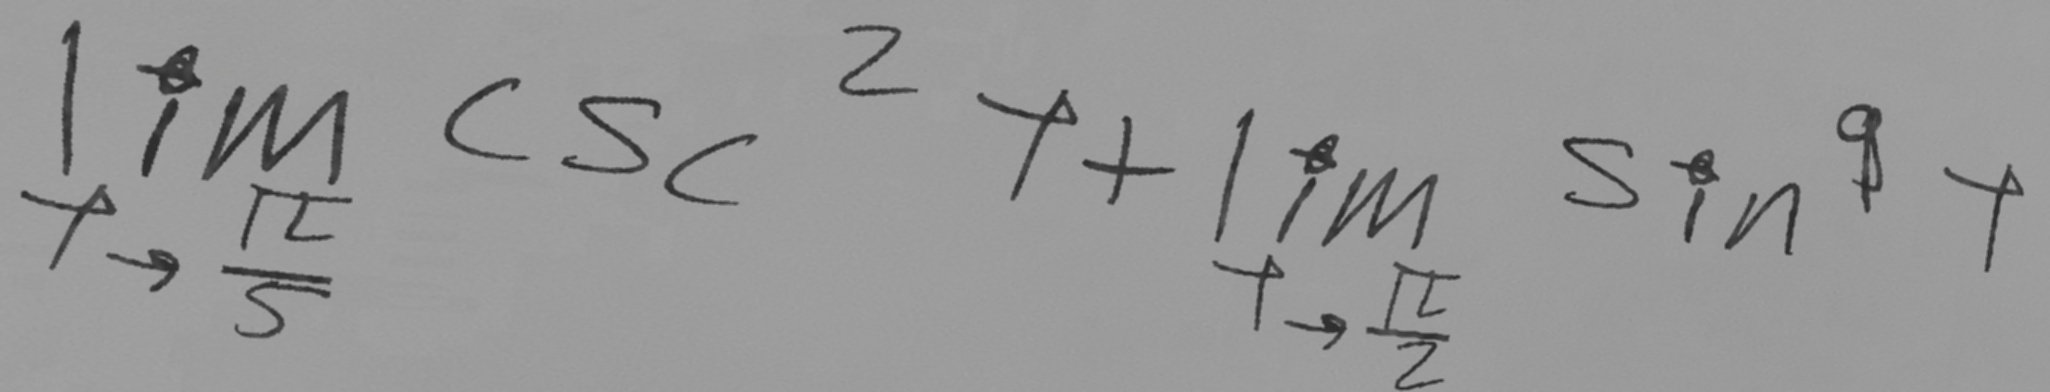 \lim_{y \to \frac{\pi}{5}} \csc^2 y + \lim_{y \to \frac{\pi}{2}} \sin^9 y